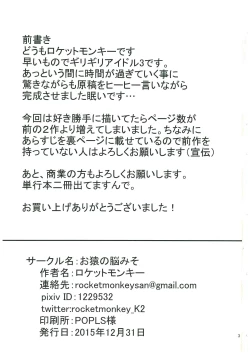 前書き
どうもロケットモンキーです
早いものでギリギリアイドル3です。
あっという間に時間が過ぎていく事に
驚きながらも原稿をヒーヒー言いながら
完成させました眠いです…
今回は好き勝手に描いてたらページ数が
前の2作より増えてしまいました。ちなみに
あらすじを裏ページに載せているので前作を
持っていない人はよろしくお願いします(宣伝)
あと、商業の方もよろしくお願いします。
単行本二冊出てますんで。
お買い上げありがとうございました！
サークル名:お猿の脳みそ
作者名:ロケットモンキー
連絡先:rocketmonkeysan@gmail.com
pixiv ID:1229532
twitter:rocketmonkey_K2
印刷所:POPLS様
発行日:2015年12月31日